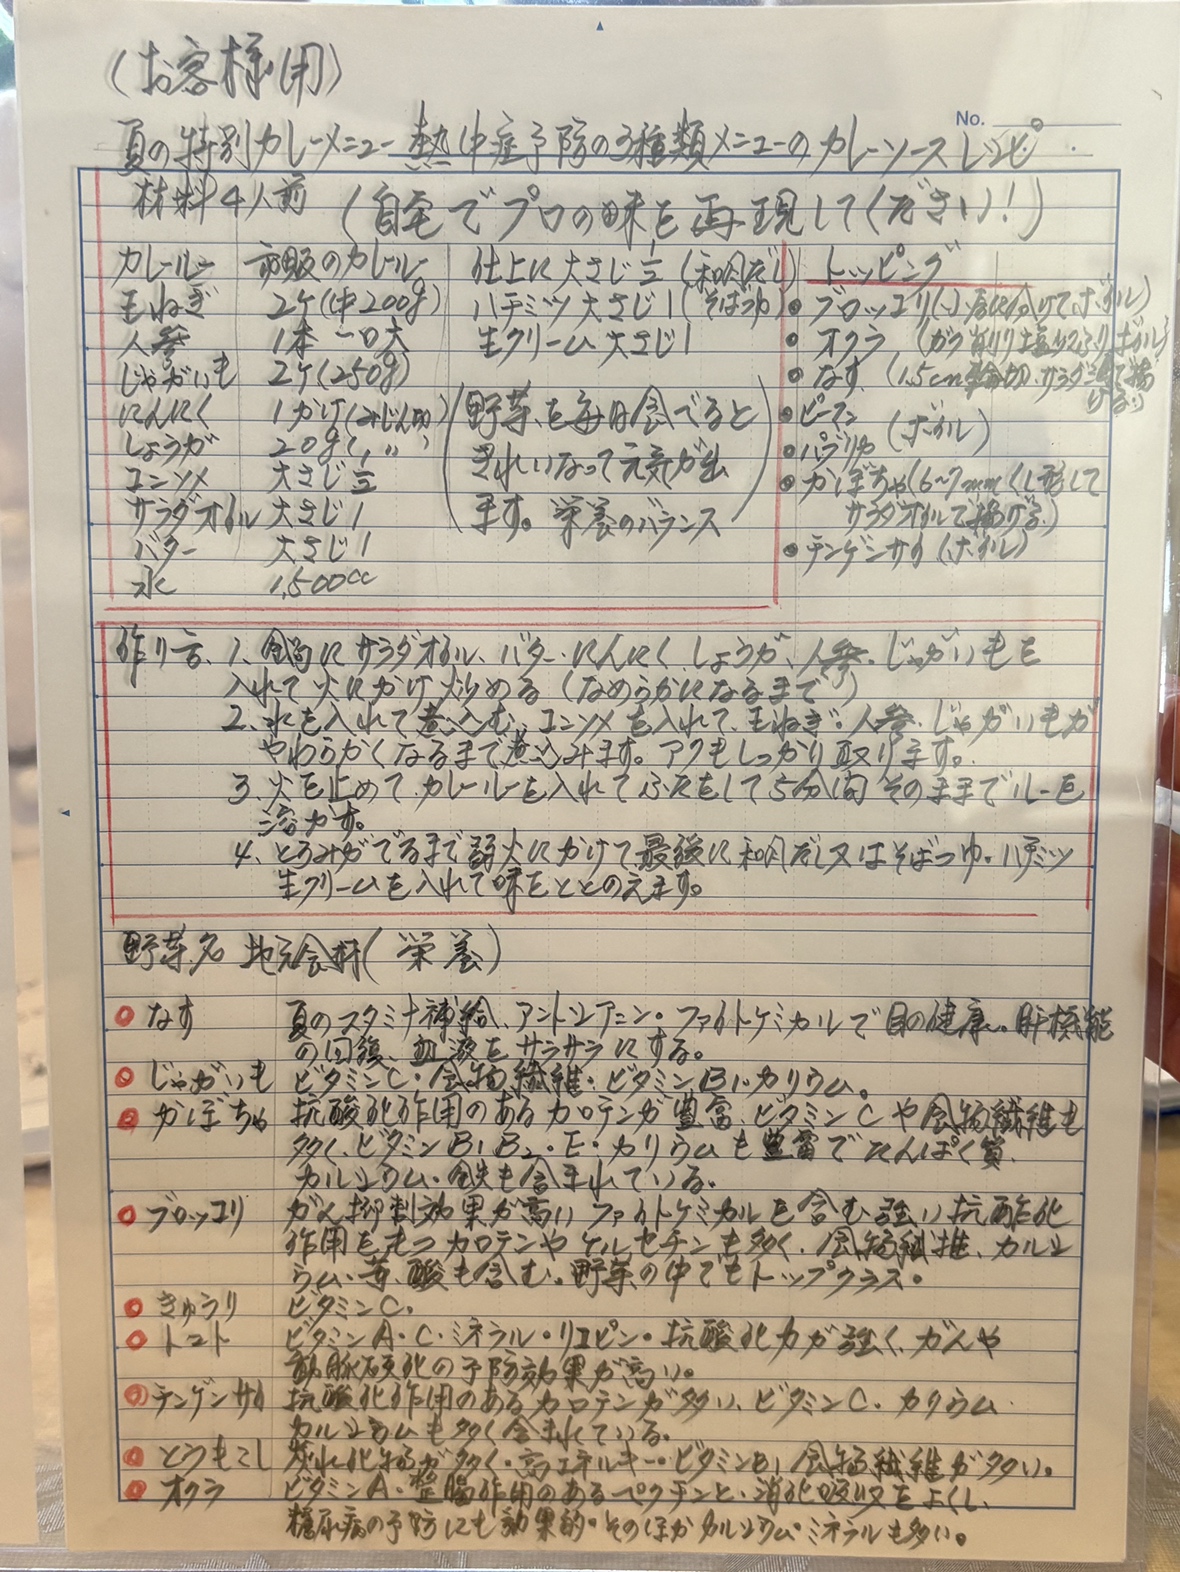 (お客様用)
No.
夏の特別カレーメニュー 熱中症予防の3種類メニューのカレーソースレシピ
材料4人前 (自宅でプロの味を再現してください!)
カレールー 市販のカレールー
玉ねぎ 2ケ(中200g)
人参 1本 一口大
じゃがいも 2ケ(250g)
にんにく 1かけ(みじん切)
しょうが 20g(〃 〃)
コンソメ 大さじ1/2
サラダオイル 大さじ1
バター 大さじ1
水 1,500cc
仕上に 大さじ1/2 (和風だし)
ハチミツ 大さじ1(そばつゆ)
生クリーム 大さじ1
(野菜を毎日食べると
きれいなって元気が出
ます。栄養のバランス)
トッピング
● ブロッコリ(小房に分けてボイル)
● オクラ (ガク削り塩少々ふりボイル)
● なす (1.5cm輪切.サラダ油で揚
げる)
● ピーマン
● パプリカ (ボイル)
● かぼちゃ(6~7mmくし形して
サラダオイルで揚げる)
● チンゲンサイ(ボイル)
作り方、1、鍋にサラダオイル、バター、にんにく、しょうが、人参、じゃがいもを
入れて火にかけ炒める(なめらかになるまで)
2、水を入れて煮込む、コンソメを入れて、玉ねぎ・人参・じゃがいもが
やわらかくなるまで煮込みます。アクもしっかり取ります。
3、火を止めて、カレールーを入れてふたをして5分間そのままでルーを
溶かす。
4、とろみがでるまで弱火にかけて最後に和風だし又はそばつゆ・ハチミツ
生クリームを入れて味をととのえます。
野菜名 地元食材(栄養)
○ なす 夏のスタミナ補給、アントシアニン・ファイトケミカルで目の健康。肝機能
の回復、血液をサラサラにする。
○ じゃがいも ビタミンC・食物繊維・ビタミンB1・カリウム。
○ かぼちゃ 抗酸化作用のあるカロテンが豊富、ビタミンCや食物繊維も
多く、ビタミンB1B2・E・カリウムも豊富でたんぱく質、
カルシウム・鉄も含まれている。
○ ブロッコリ がん抑制効果が高いファイトケミカルを含む強い抗酸化
作用をもつカロテンやケルセチンも多く、食物繊維、カルシ
ウム・葉酸も含む。野菜の中でもトップクラス。
○ きゅうり ビタミンC.
○ トマト ビタミンA・C・ミネラル・リコピン・抗酸化力が強く、がんや
動脈硬化の予防効果が高い。
○ チンゲンサイ 抗酸化作用のあるカロテンが多い、ビタミンC・カリウム・
カルシウムも多く含まれている。
○ とうもこし 炭水化物が多く・高エネルギー・ビタミンB1食物繊維が多い。
○ オクラ ビタミンA・整腸作用のあるペクチンと、消化吸収をよくし、
糖尿病の予防にも効果的・そのほかカルシウム・ミネラルも多い。